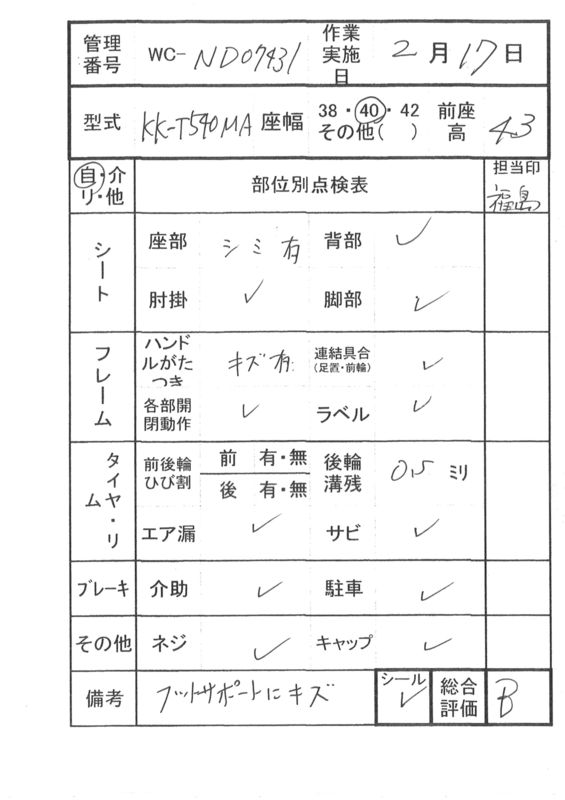 管理番号 WC- ND07431 作業実施日 2月17日
型式 KK-T540MA 座幅 38・40・42 その他( ) 前座高 43
自・介 リ・他 部位別点検表 担当印 福島
シート 座部 シミ有 背部 ✓
肘掛 ✓ 脚部 ✓
フレーム ハンドルがたつき キズ有 連結具合(足置・前輪) ✓
各部開閉動作 ✓ ラベル ✓
タイヤ・リム 前後輪ひび割 前 有・無 後 有・無 後輪溝残 0.5 ミリ
エア漏 ✓ サビ ✓
ブレーキ 介助 ✓ 駐車 ✓
その他 ネジ ✓ キャップ ✓
備考 フットサポートにキズ シール ✓ 総合評価 B